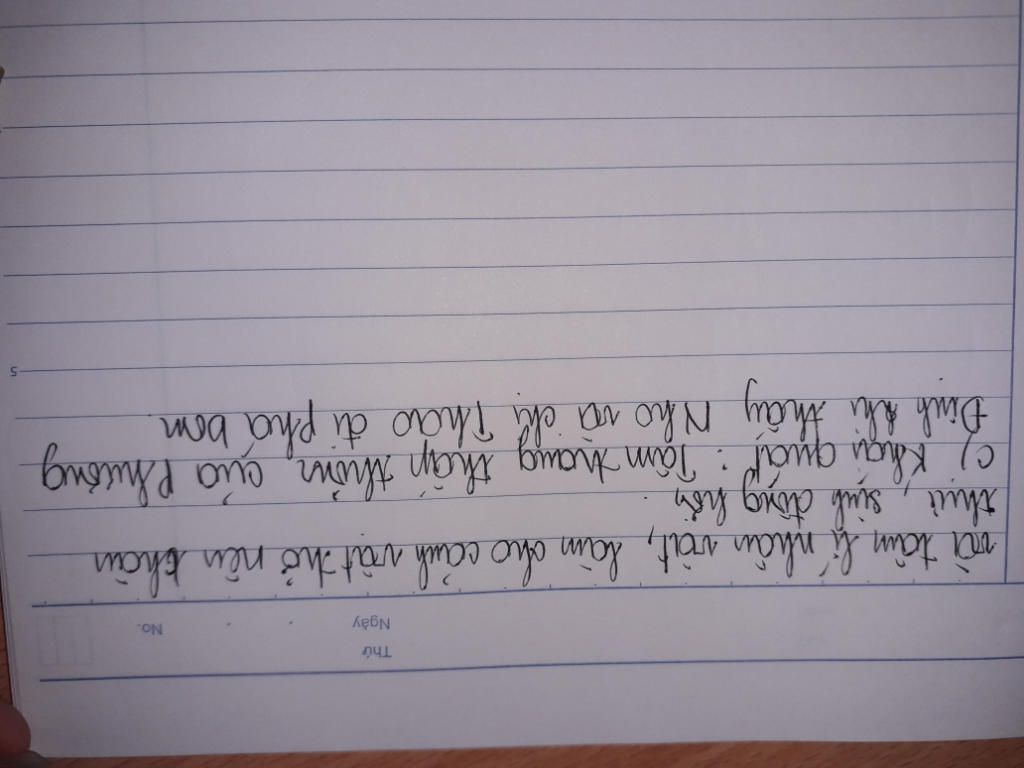 Thứ
Ngày . . No.
và tâm lí nhân vật, làm cho cảnh vật trở nên chân
thực, sinh động hơn.
c) Khái quát: Tâm trạng thấp thỏm của Phương
Định khi thấy Nho và chị Thao đi phá bom.
5